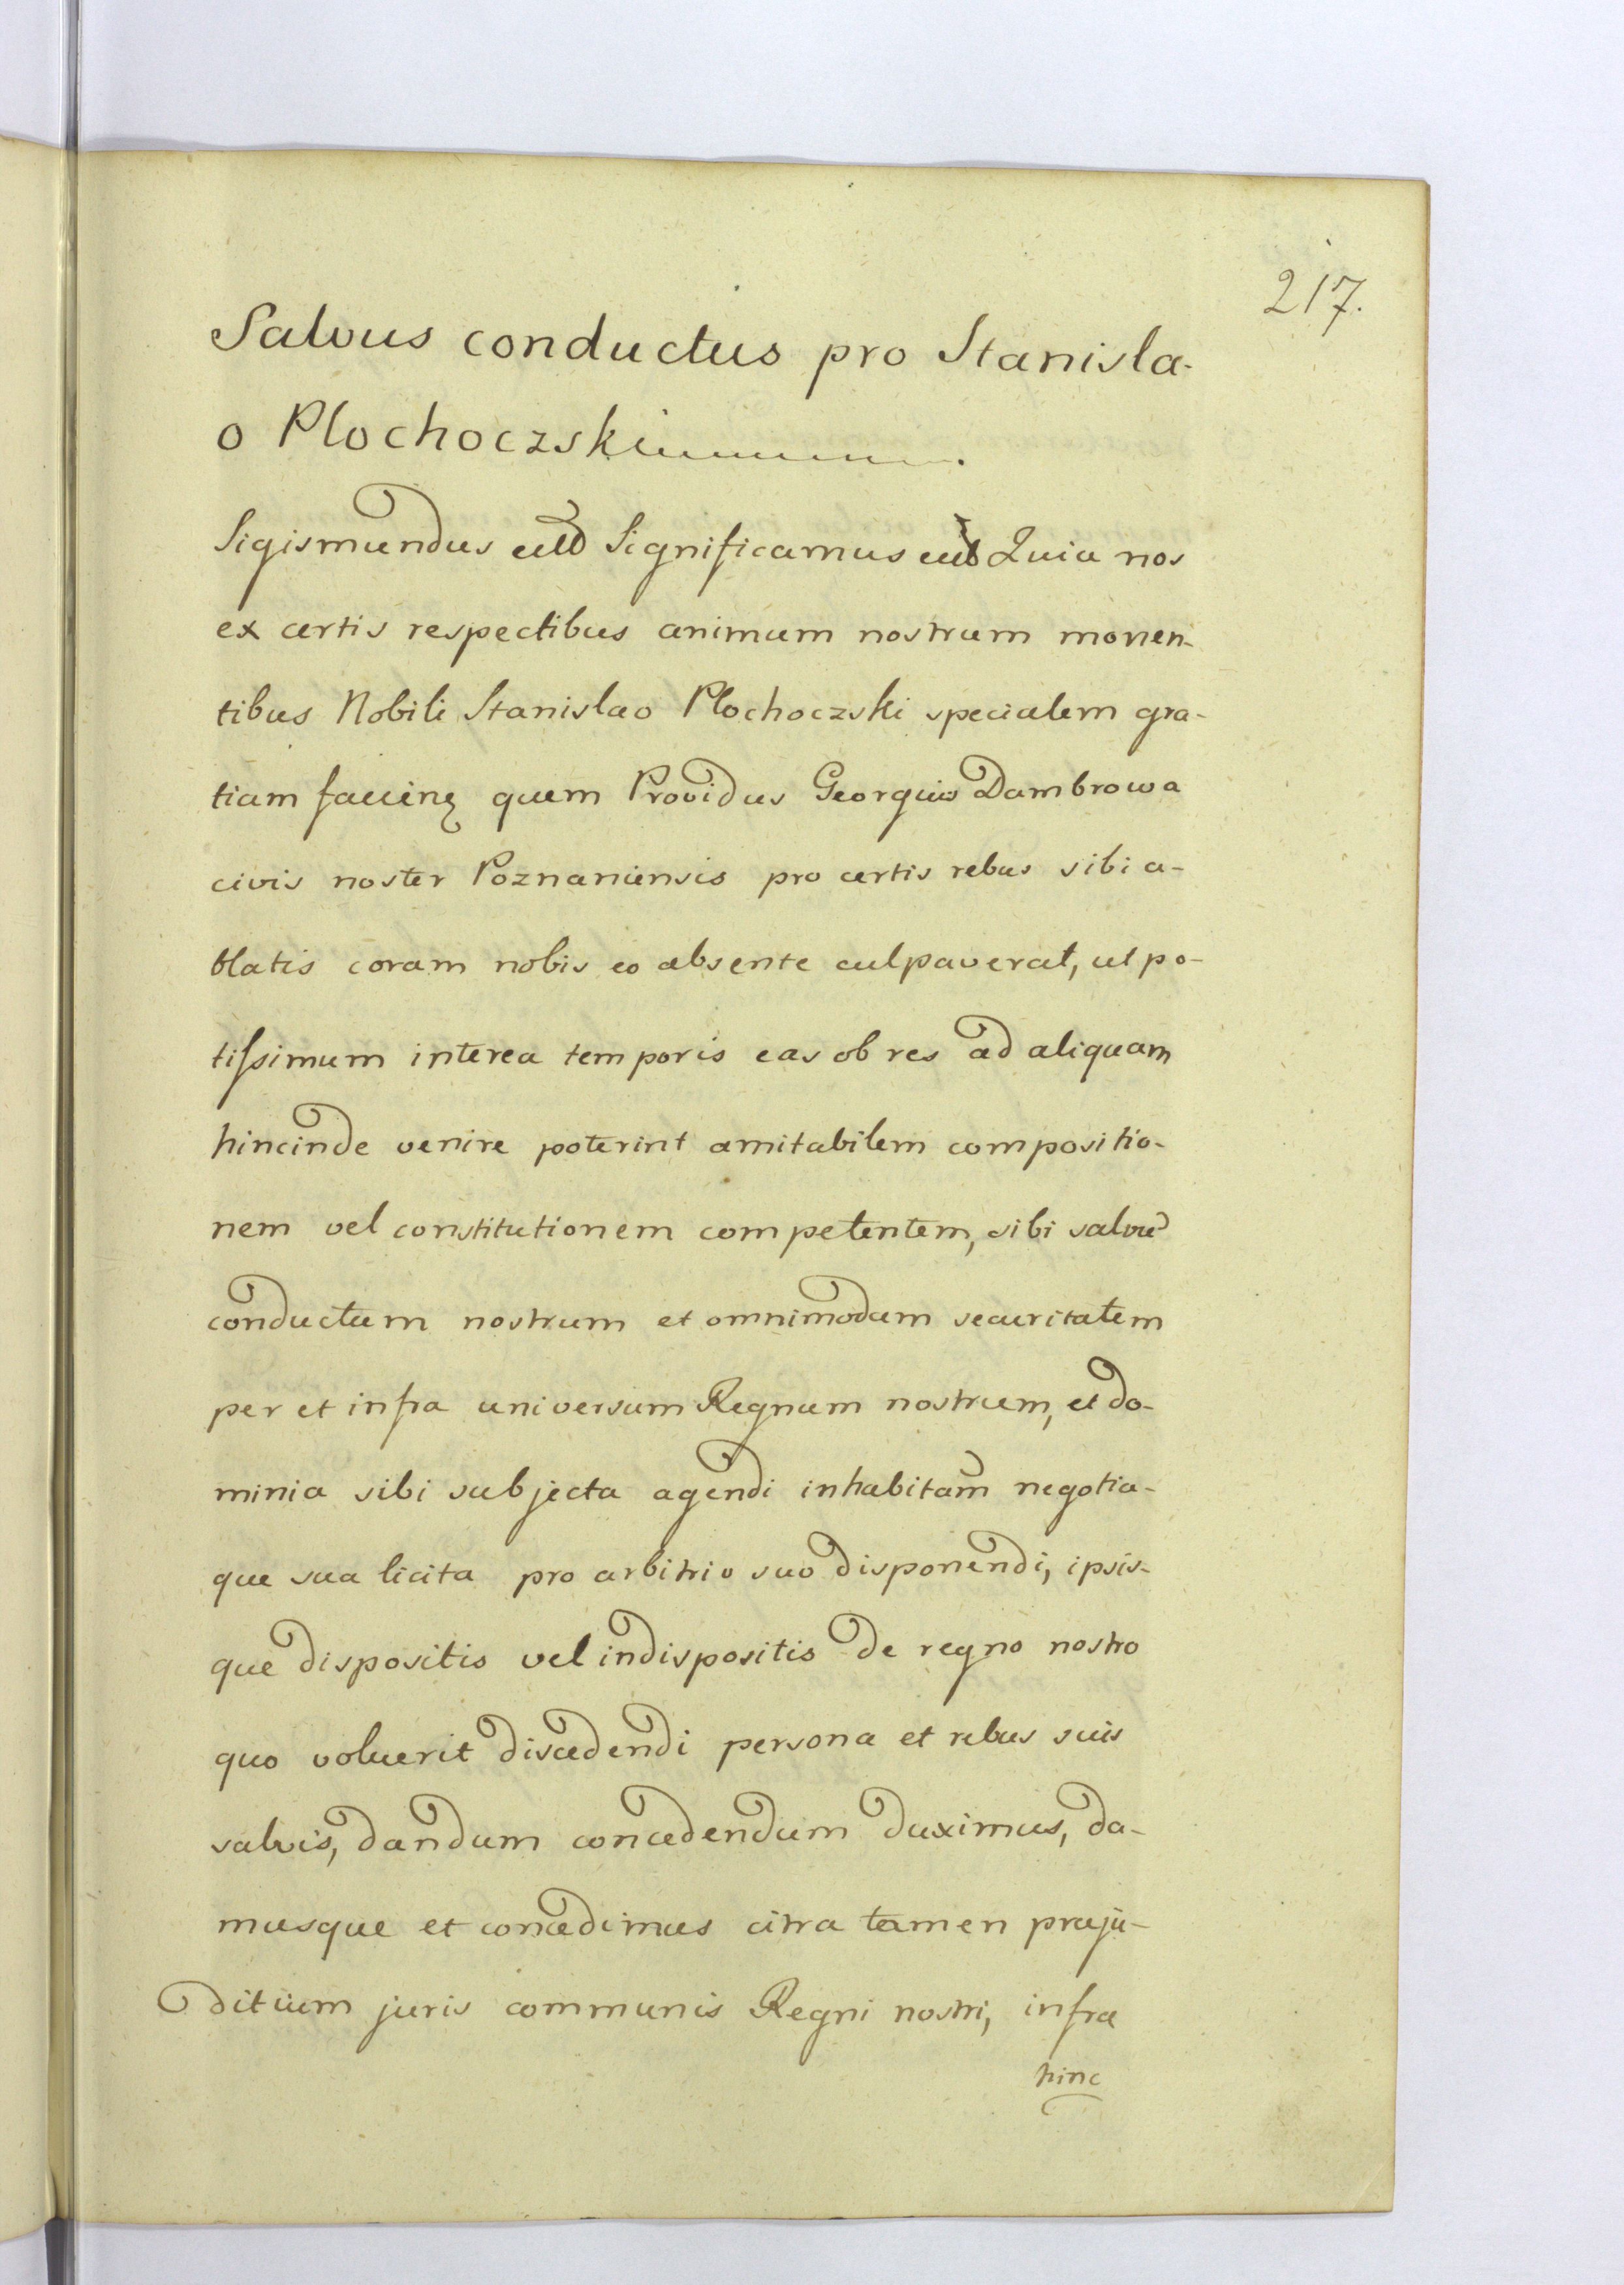 217.
Salvus conductus pro Stanisla-
o Plochoczski
Sigismundus Significamus Quia nos
ex certis respectibus animum nostrum moven-
tibus Nobili Stanislao Plochoczski specialem gra-
tiam quem Providus Georgius Dambrowa
civis noster Poznaniensis pro certis rebus sibi a-
blatis coram nobis eo absente culpaverat, ut po-
tissimum interea temporis eas ob res ad aliquam
hincinde venire poterint amitabilem compositio-
nem vel constitutionem competentem, sibi salvū
conductum nostrum et omnimodam securitatem
per et infra universum Regnum nostrum, et do-
minia sibi subjecta agendi inhabitam̄ negotia-
que sua licita pro arbitrio suo disponendi, ipsis-
que dispositis vel indispositis de regno nostro
quo voluerit discedendi persona et rebus suis
salvis, dandum concedendum duximus, da-
musque et concedimus citra tamen praeju-
ditium juris communis Regni nostri, infra
hinc